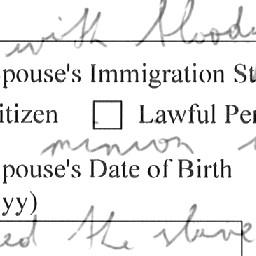 with bloody
pouse's Immigration St
itizen Lawful Per
minion
pouse's Date of Birth
yy)
ed the slave